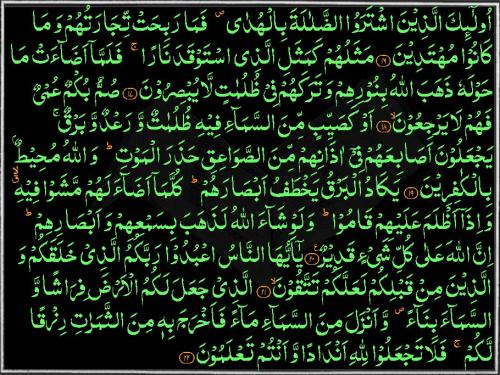 اُولٰٓئِكَ الَّذِيْنَ اشْتَرَوُا الضَّلٰلَةَ بِالْهُدٰى ۖ فَمَا رَبِحَتْ تِّجَارَتُهُمْ وَمَا
كَانُوْا مُهْتَدِيْنَ ﴿۱۶﴾ مَثَلُهُمْ كَمَثَلِ الَّذِى اسْتَوْقَدَ نَارًا ۚ فَلَمَّآ اَضَآءَتْ مَا
حَوْلَهٗ ذَهَبَ اللّٰهُ بِنُوْرِهِمْ وَتَرَكَهُمْ فِىْ ظُلُمٰتٍ لَّا يُبْصِرُوْنَ ﴿۱۷﴾ صُمٌّۢ بُكْمٌ عُمْىٌ
فَهُمْ لَا يَرْجِعُوْنَ ۙ﴿۱۸﴾ اَوْ كَصَيِّبٍ مِّنَ السَّمَآءِ فِيْهِ ظُلُمٰتٌ وَّرَعْدٌ وَّبَرْقٌ ۚ
يَجْعَلُوْنَ اَصَابِعَهُمْ فِىْٓ اٰذَانِهِمْ مِّنَ الصَّوَاعِقِ حَذَرَ الْمَوْتِ ؕ وَاللّٰهُ مُحِيْطٌۢ
بِالْكٰفِرِيْنَ ﴿۱۹﴾ يَكَادُ الْبَرْقُ يَخْطَفُ اَبْصَارَهُمْ ؕ كُلَّمَآ اَضَآءَ لَهُمْ مَّشَوْا فِيْهِ
وَاِذَآ اَظْلَمَ عَلَيْهِمْ قَامُوْا ؕ وَلَوْ شَآءَ اللّٰهُ لَذَهَبَ بِسَمْعِهِمْ وَاَبْصَارِهِمْ ؕ
اِنَّ اللّٰهَ عَلٰى كُلِّ شَىْءٍ قَدِيْرٌ ﴿۲۰﴾ يٰٓاَيُّهَا النَّاسُ اعْبُدُوْا رَبَّكُمُ الَّذِىْ خَلَقَكُمْ وَ
الَّذِيْنَ مِنْ قَبْلِكُمْ لَعَلَّكُمْ تَتَّقُوْنَ ۙ﴿۲۱﴾ الَّذِىْ جَعَلَ لَكُمُ الْاَرْضَ فِرَاشًا وَّ
السَّمَآءَ بِنَآءً ۖ وَّاَنْزَلَ مِنَ السَّمَآءِ مَآءً فَاَخْرَجَ بِهٖ مِنَ الثَّمَرٰتِ رِزْقًا
لَّكُمْ ۚ فَلَا تَجْعَلُوْا لِلّٰهِ اَنْدَادًا وَّاَنْتُمْ تَعْلَمُوْنَ ﴿۲۲﴾